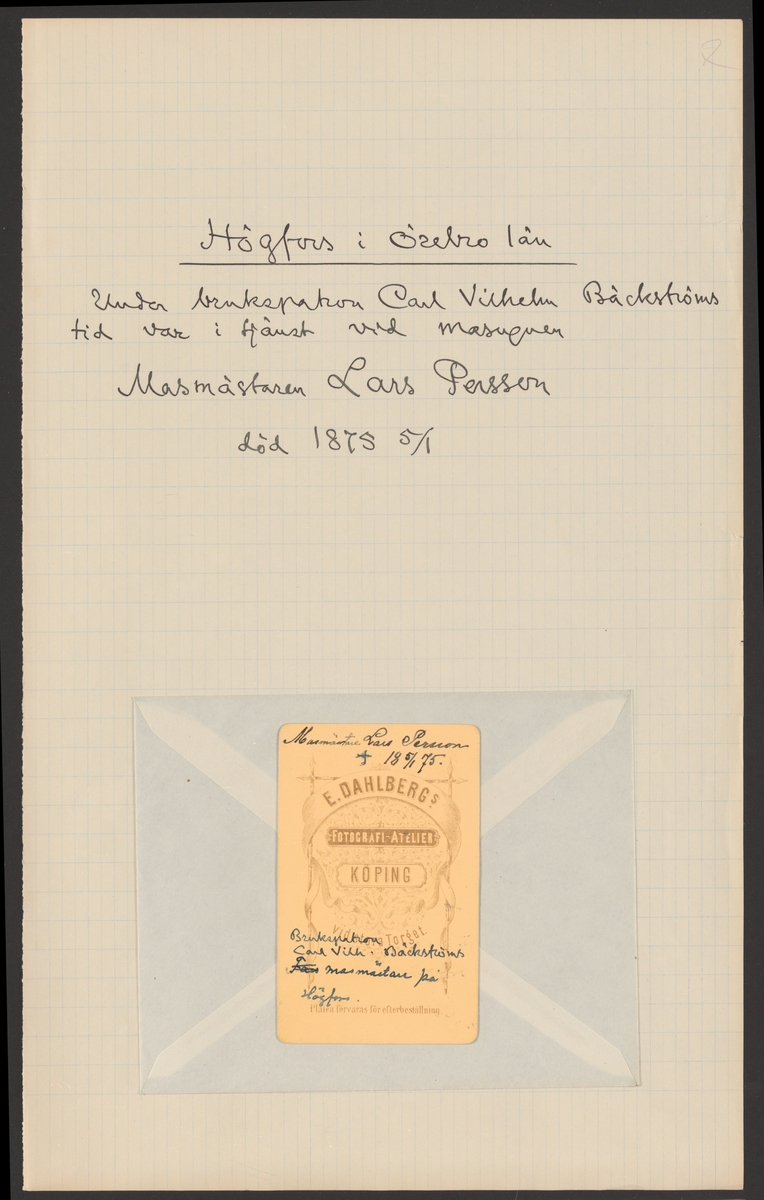 2
Högfors i Örebro län
Under brukspatron Carl Vilhelm Bäckströms
tid var i tjänst vid masugnen
Masmästaren Lars Persson
död 1875 5/1
Masmästare Lars Persson
† 18 5/1 75.
E. DAHLBERGS
FOTOGRAFI-ATELIER
KÖPING
Vid Torget.
Brukspatron
Carl Vilh. Bäckströms
masmästare på
Högfors.
Plåten förvaras för efterbeställning.